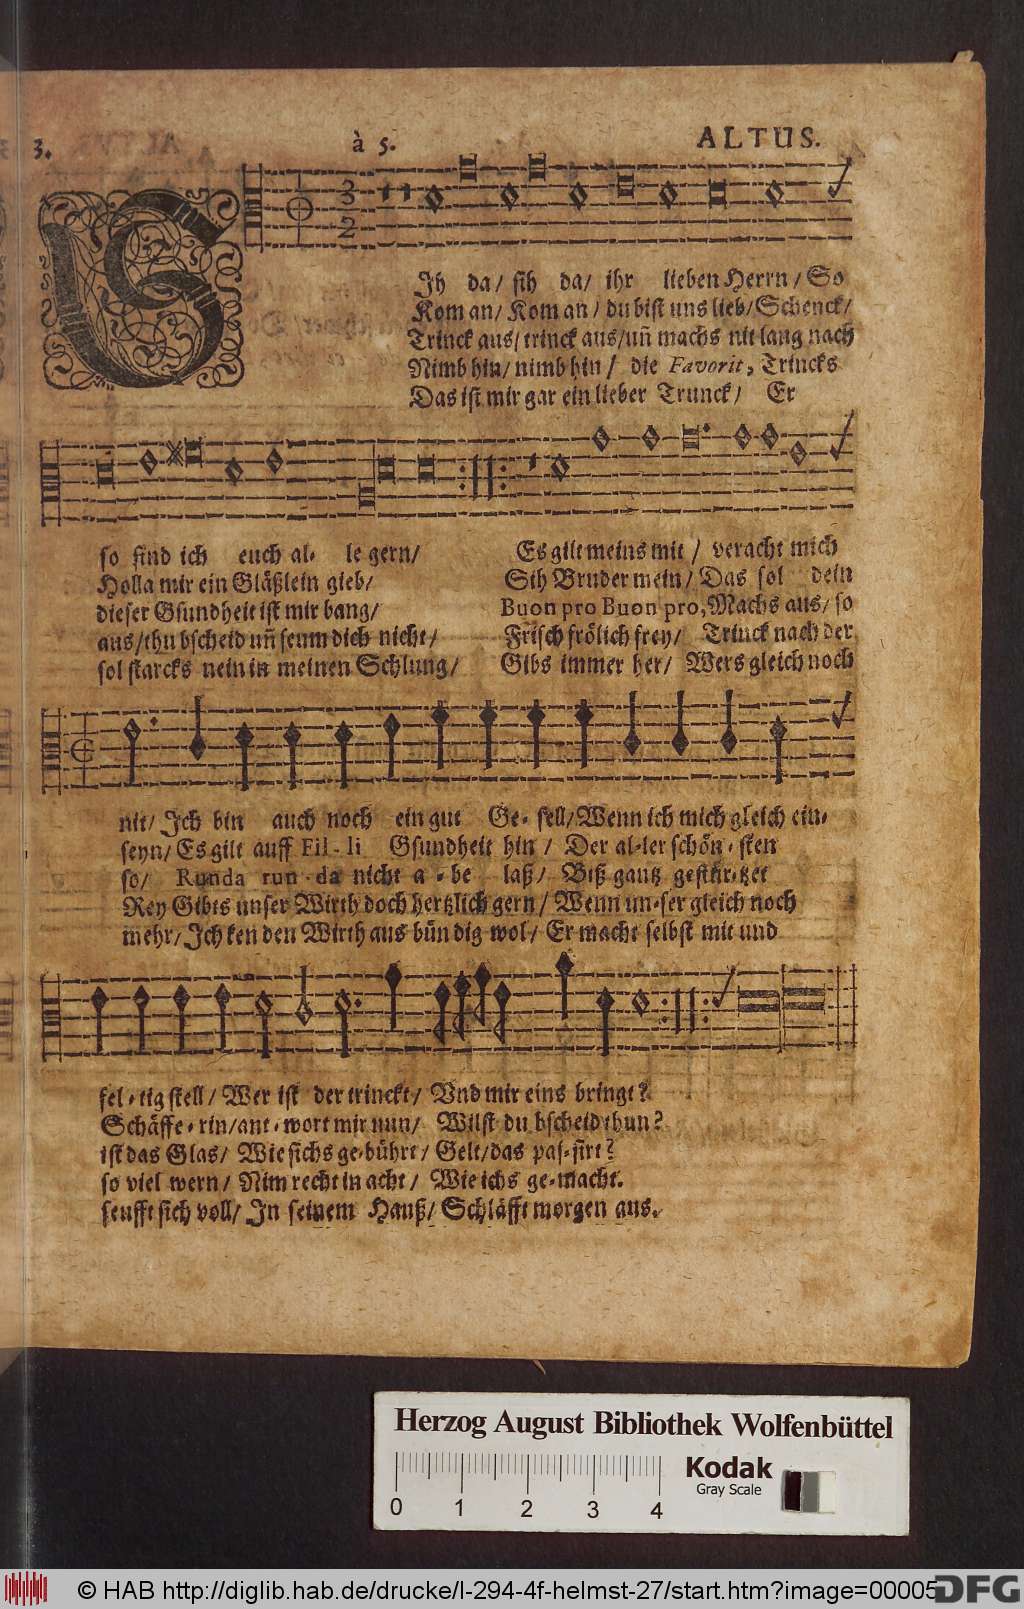 3. à 5. ALTUS.
SJh da/ sih da/ ihr lieben Herrn/ So
Kom an/ Kom an/ du bist uns lieb/ Schenck/
Trinck aus/ trinck aus/ un̄ machs nit lang nach
Nimb hin/ nimb hin/ die Favorit, Trincks
Das ist mir gar ein lieber Trunck/ Er
so find ich euch al- le gern/ Es gilt meins mit/ veracht mich
Holla mir ein Gläßlein gieb/ Sih Bruder mein/ Das sol dein
dieser Gsundheit ist mir bang/ Buon pro Buon pro, Machs aus/ so
aus/ thu bscheid un̄ seum dich nicht/ Frisch frölich frey/ Trinck nach der
sol starcks nein in meinen Schlung/ Gibs immer her/ Wers gleich noch
nit/ Jch bin auch noch ein gut Ge- sell/ Wenn ich mich gleich ein-
seyn/ Es gilt auff Fil-li Gsundheit hin/ Der al-ler schön-sten
so/ Runda run-da nicht a-be laß/ Biß gantz gestür-tzet
Rey Gibts unser Wirth doch hertzlich gern/ Wenn un-ser gleich noch
mehr/ Jch ken den Wirth aus bün dig wol/ Er macht selbst mit und
fel-tig stell/ Wer ist der trinckt/ Vnd mir eins bringt?
Schäffe-rin/ ant-wort mir nun/ Wilst du bscheid thun?
ist das Glas/ Wie sichs ge-bührt/ Gelt/ das pas-sirt?
so viel wern/ Nim recht in acht/ Wie ichs ge-macht.
seufft sich voll/ Jn seinem Hauß/ Schläfft morgen aus.
Herzog August Bibliothek Wolfenbüttel
0 1 2 3 4
Kodak
Gray Scale
© HAB http://diglib.hab.de/drucke/l-294-4f-helmst-27/start.htm?image=00005
DFG